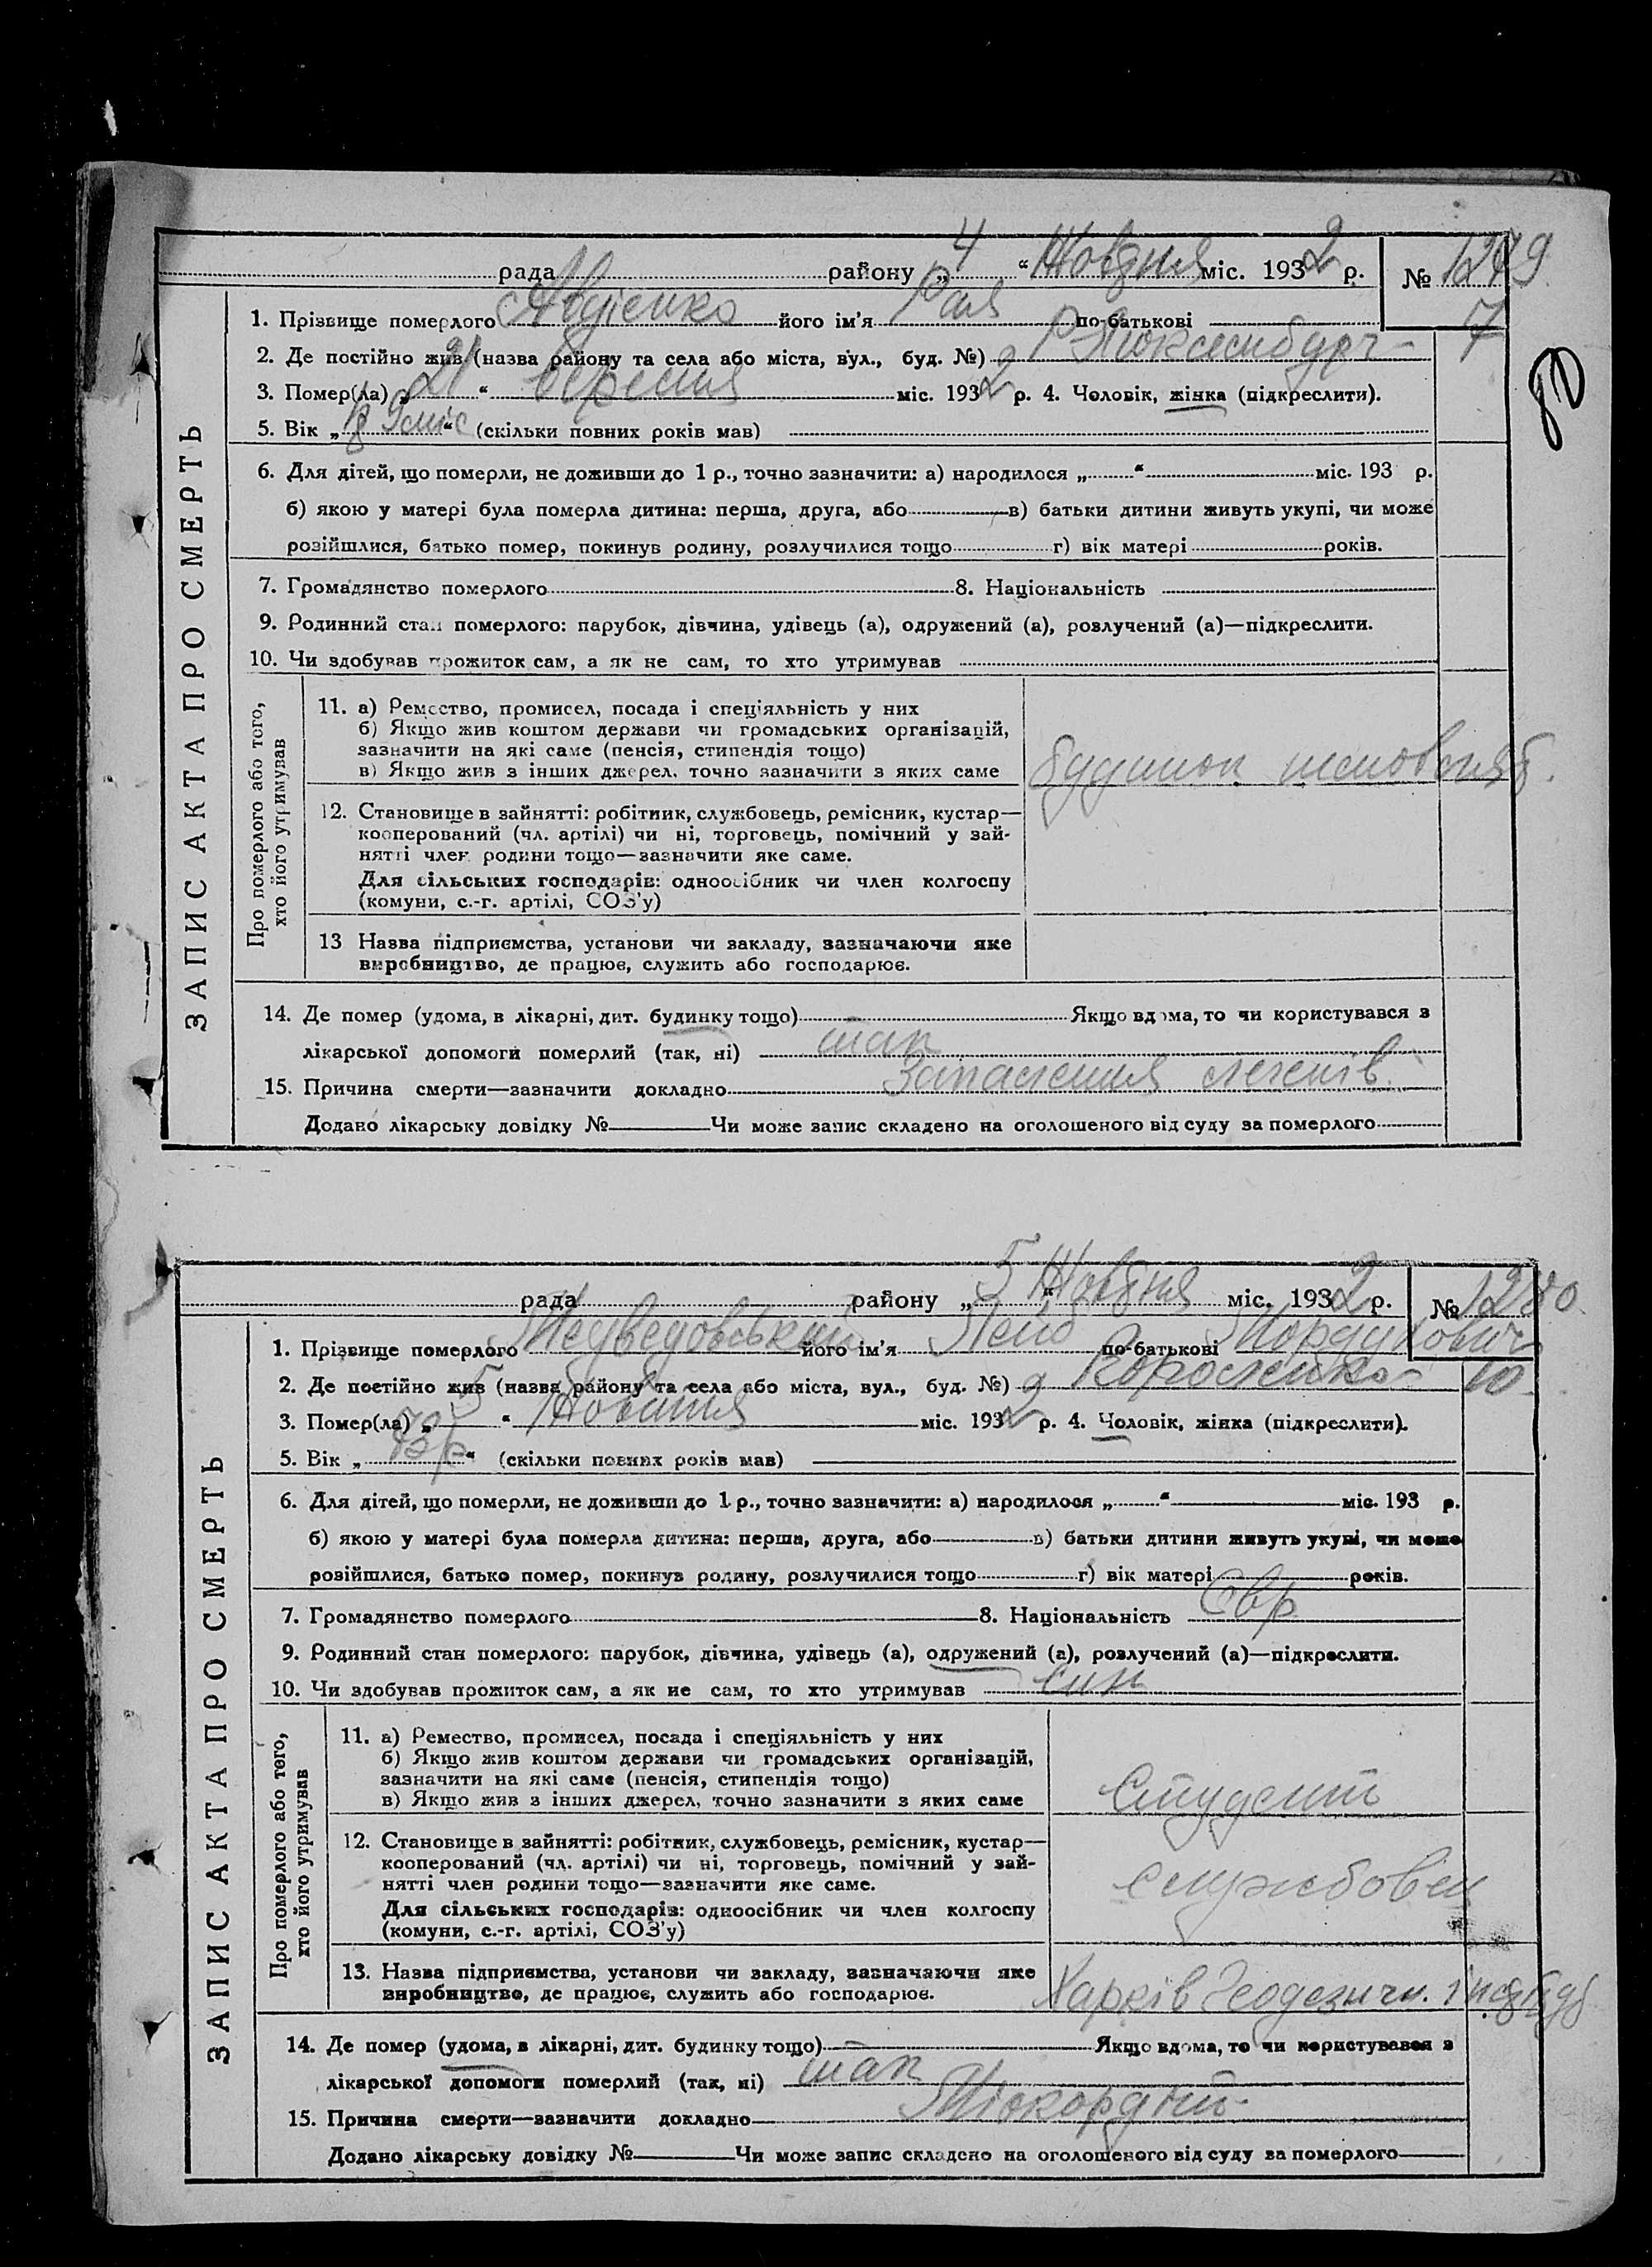 рада району „4“ Жовтня міс. 1932 р. № 1279
1. Прізвище померлого Авдієнко його ім'я Рая по-батькові 7
2. Де постійно жив (назва району та села або міста, вул., буд. №) Р Люксембург 2
80
3. Помер(ла) „21“ вересня міс. 1932 р. 4. Чоловік, жінка (підкреслити).
5. Вік „ міс“ (скільки повних років мав)
6. Для дітей, що померли, не доживши до 1 р., точно зазначити: а) народилося „ “ міс. 193 р.
б) якою у матері була померла дитина: перша, друга, або в) батьки дитини живуть укупі, чи може
розійшлися, батько помер, покинув родину, розлучилися тощо г) вік матері років.
7. Громадянство померлого 8. Національність
9. Родинний стан померлого: парубок, дівчина, удівець (а), одружений (а), розлучений (а)—підкреслити.
10. Чи здобував прожиток сам, а як не сам, то хто утримував
ЗАПИС АКТА ПРО СМЕРТЬ
Про померлого або того,
хто його утримував
11. а) Ремество, промисел, посада і спеціяльність у них
б) Якщо жив коштом держави чи громадських організацій,
зазначити на які саме (пенсія, стипендія тощо)
в) Якщо жив з інших джерел, точно зазначити з яких саме
будинок немовлят
12. Становище в зайнятті: робітник, службовець, ремісник, кустар—
кооперований (чл. артілі) чи ні, торговець, помічний у зай-
нятті член родини тощо—зазначити яке саме.
Для сільських господарів: одноосібник чи член колгоспу
(комуни, с.-г. артілі, СОЗ'у)
13 Назва підприємства, установи чи закладу, зазначаючи яке
виробництво, де працює, служить або господарює.
14. Де помер (удома, в лікарні, дит. будинку тощо) Якщо вдома, то чи користувався з
лікарської допомоги померлий (так, ні) так
15. Причина смерти—зазначити докладно Запалення легенів.
Додано лікарську довідку № Чи може запис складено на оголошеного від суду за померлого
рада району „5“ Жовтня міс. 1932 р. № 1280
1. Прізвище померлого Медведовський його ім'я Лейб по-батькові Мордухович
2. Де постійно жив (назва району та села або міста, вул., буд. №) Короленко 10
3. Помер(ла) „5“ Жовтня міс. 1932 р. 4. Чоловік, жінка (підкреслити).
5. Вік „ р“ (скільки повних років мав)
6. Для дітей, що померли, не доживши до 1 р., точно зазначити: а) народилося „ “ міс. 193 р.
б) якою у матері була померла дитина: перша, друга, або в) батьки дитини живуть укупі, чи може
розійшлися, батько помер, покинув родину, розлучилися тощо г) вік матері років.
7. Громадянство померлого 8. Національність Євр
9. Родинний стан померлого: парубок, дівчина, удівець (а), одружений (а), розлучений (а)—підкреслити.
10. Чи здобував прожиток сам, а як не сам, то хто утримував син
ЗАПИС АКТА ПРО СМЕРТЬ
Про померлого або того,
хто його утримував
11. а) Ремество, промисел, посада і спеціяльність у них
б) Якщо жив коштом держави чи громадських організацій,
зазначити на які саме (пенсія, стипендія тощо)
в) Якщо жив з інших джерел, точно зазначити з яких саме
Студент
12. Становище в зайнятті: робітник, службовець, ремісник, кустар—
кооперований (чл. артілі) чи ні, торговець, помічний у зай-
нятті член родини тощо—зазначити яке саме.
Для сільських господарів: одноосібник чи член колгоспу
(комуни, с.-г. артілі, СОЗ'у)
службовец
13. Назва підприємства, установи чи закладу, зазначаючи яке
виробництво, де працює, служить або господарює.
Харків Геодезичн.
14. Де помер (удома, в лікарні, дит. будинку тощо) Якщо вдома, то чи користувався з
лікарської допомоги померлий (так, ні) так
15. Причина смерти—зазначити докладно Міокордит
Додано лікарську довідку № Чи може запис складено на оголошеного від суду за померлого